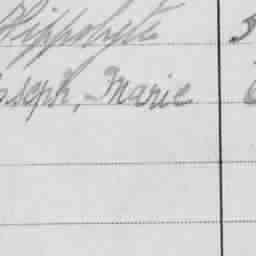 Hippolyte 5
Joseph, Marie